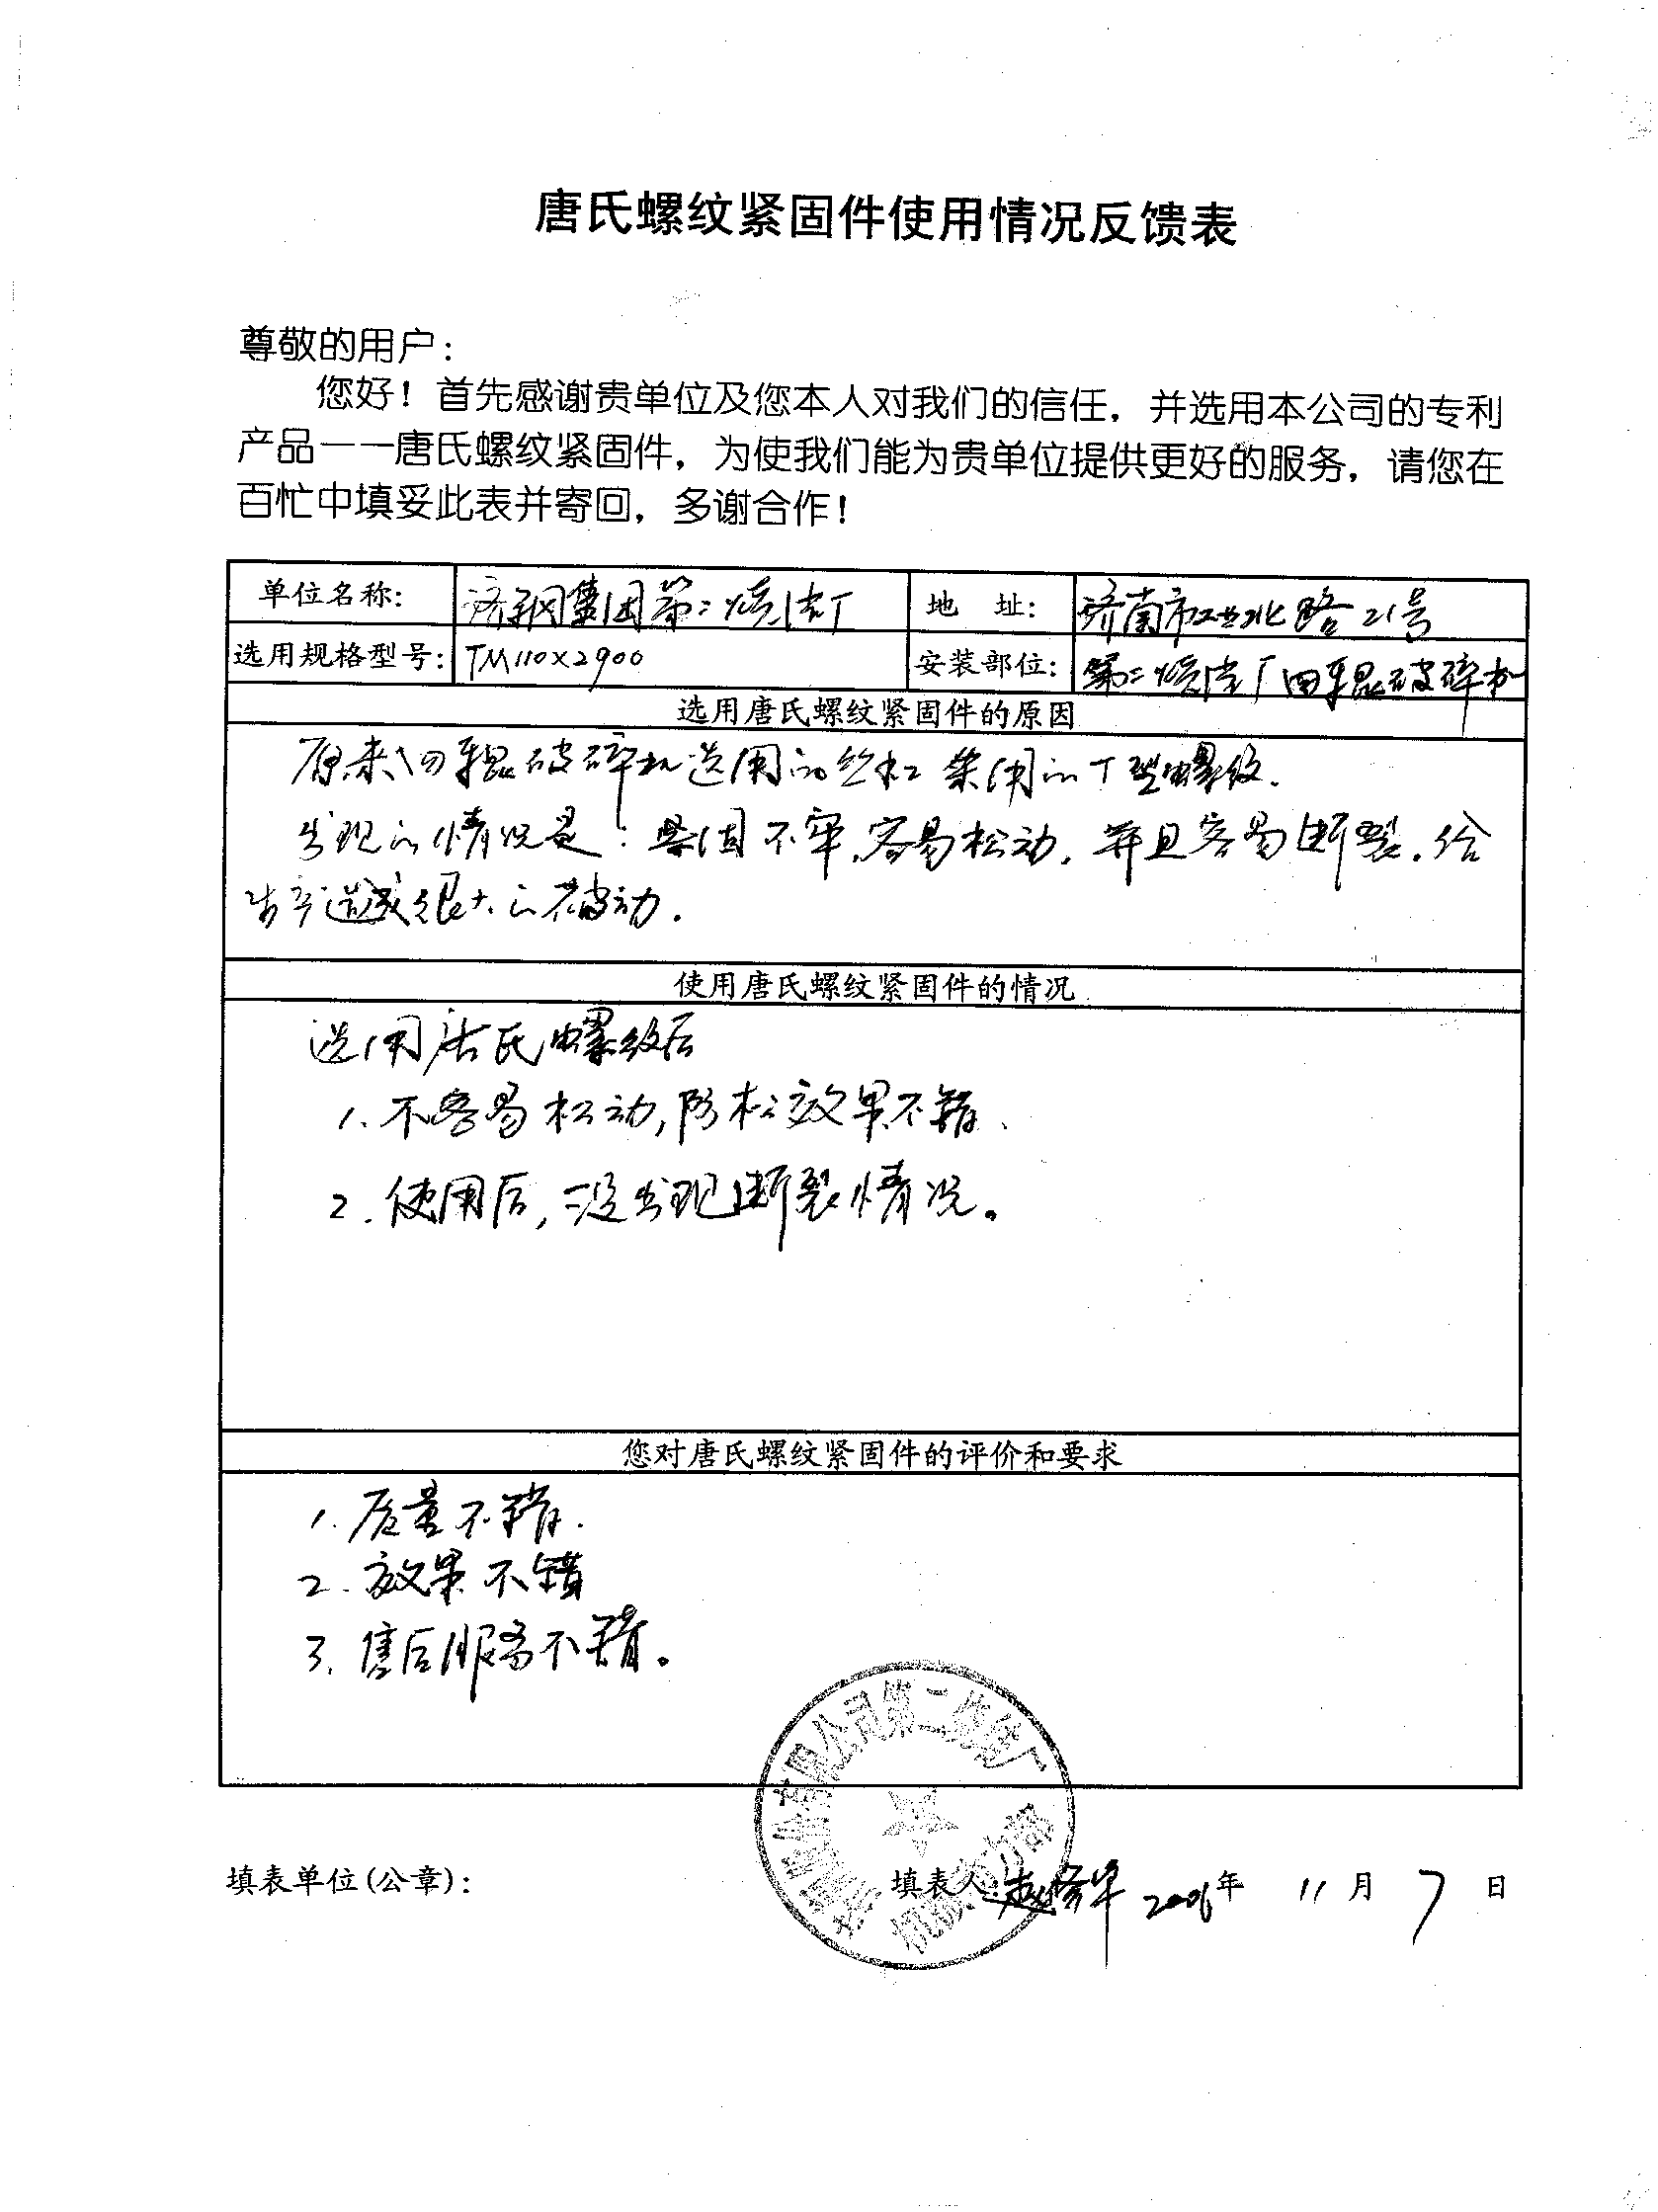 唐氏螺纹紧固件使用情况反馈表
尊敬的用户：
您好！首先感谢贵单位及您本人对我们的信任，并选用本公司的专利
产品——唐氏螺纹紧固件，为使我们能为贵单位提供更好的服务，请您在
百忙中填妥此表并寄回，多谢合作！
单位名称： 济钢集团第二烧结厂 地 址： 济南市工业北路21号
选用规格型号： TM110×2900 安装部位： 第二烧结厂四辊破碎机
选用唐氏螺纹紧固件的原因
原来四辊破碎机选用的丝杠 采用的T型螺纹.
发现的情况是：紧固不牢,容易松动,并且容易断裂.给
生产造成很大的被动.
使用唐氏螺纹紧固件的情况
选用唐氏螺纹后
1.不容易松动,防松效果不错.
2.使用后,没发现断裂情况。
您对唐氏螺纹紧固件的评价和要求
1.质量不错.
2.效果不错
3.售后服务不错。
有限公司第二烧结厂
填表单位(公章)： 填表人: 2006年 11月 7日